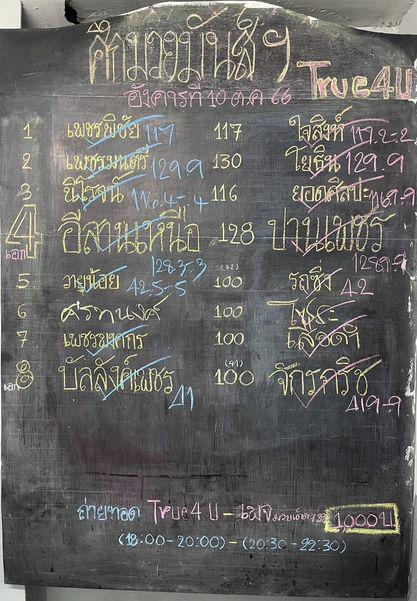 ศึกมวยมันส์ฯ
อังคารที่ 10 ต.ค 66 True4U
1 เพชรพิชัย 117 117 ใจสิงห์ 117.2-2
2 เพชรมนตรี 129.9 130 โยธิน 129.9
3. นิโรจน์ 116.4-4 116 ยอดศิลปะ
4 อีสานเหนือ 128 ปานเพชร
เอก 128.3-3 (42)
5. วายุน้อย 42.5-5 100 รถซิ่ง 42
6 ศรทนงค์ 100
7 100 เสือดำ
8 บัลลังค์เพชร (41) 100 จักรกริช
เอก 41 419.9
ถ่ายทอด True4U - 1,000บ
(18:00-20:00)-(20:30-22:30)